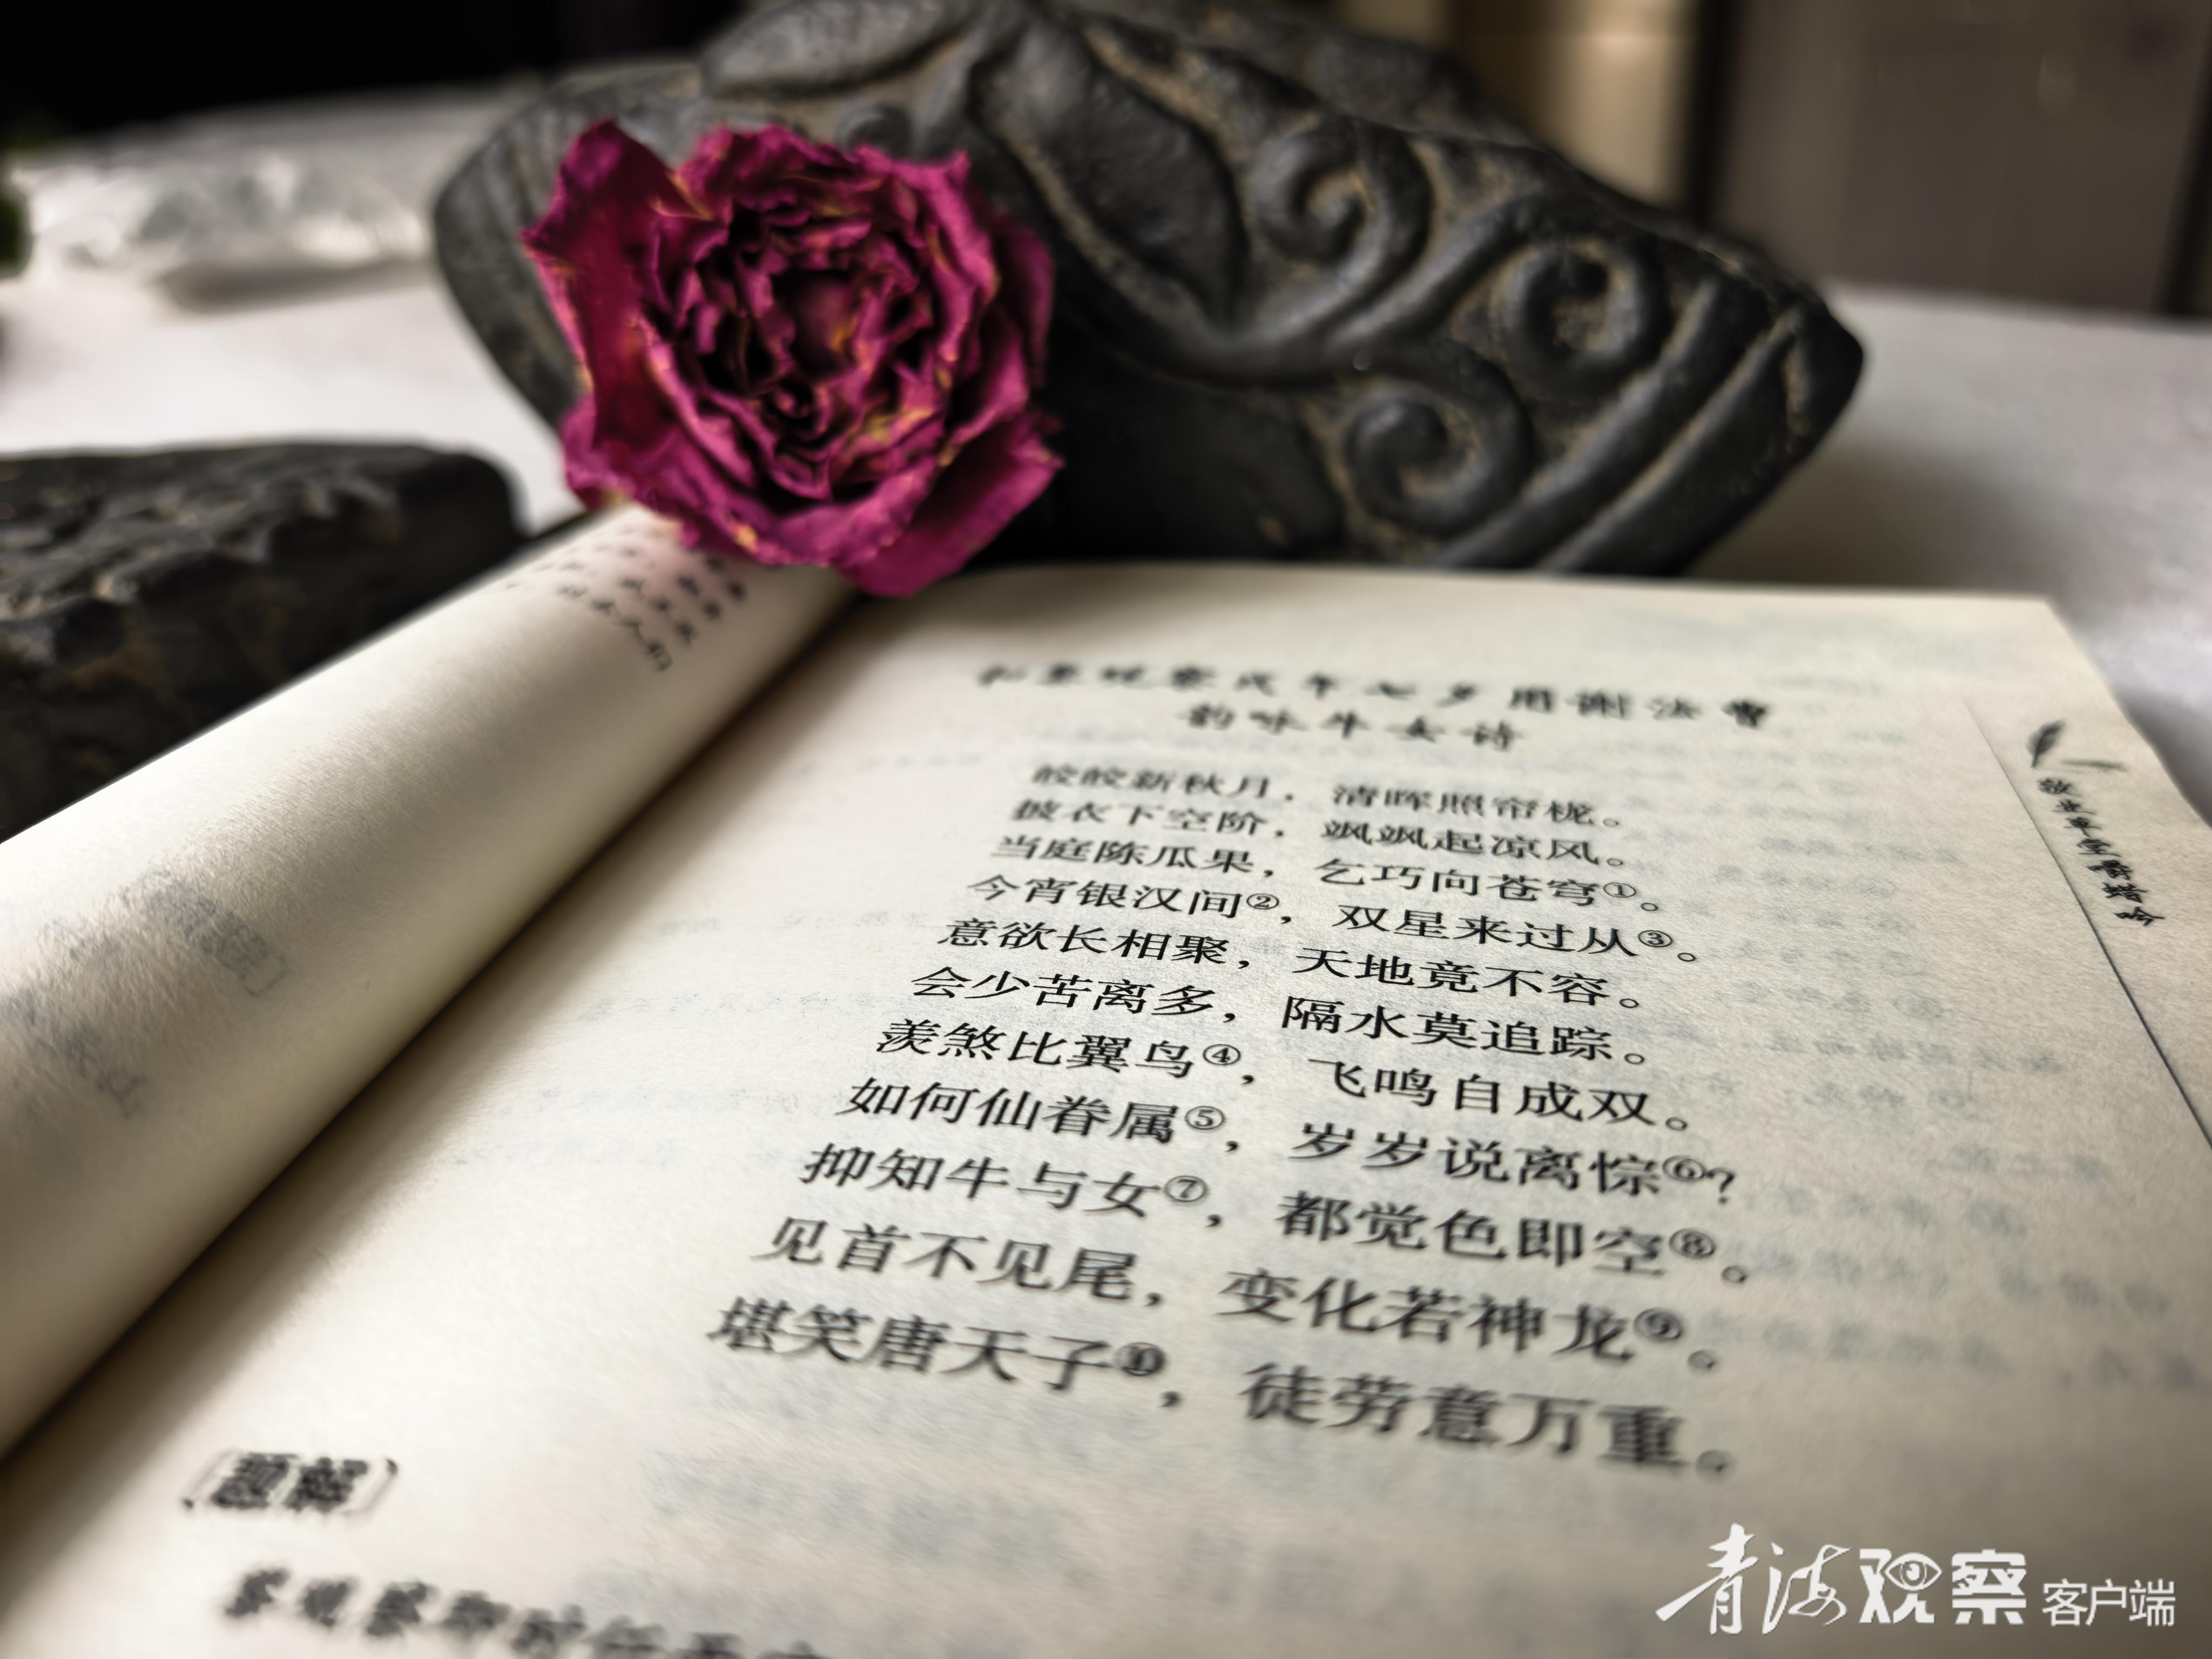 七夕用谢法曹
韵咏牛女诗
皎皎新秋月，清晖照帘栊。
披衣下空阶，飒飒起凉风。
当庭陈瓜果，乞巧向苍穹①。
今宵银汉间②，双星来过从③。
意欲长相聚，天地竟不容。
会少苦离多，隔水莫追踪。
羡煞比翼鸟④，飞鸣自成双。
如何仙眷属⑤，岁岁说离悰⑥？
抑知牛与女⑦，都觉色即空⑧。
见首不见尾，变化若神龙⑨。
堪笑唐天子⑩，徒劳意万重。
〔题解〕
敬业草堂嚼蜡吟
青海观察客户端